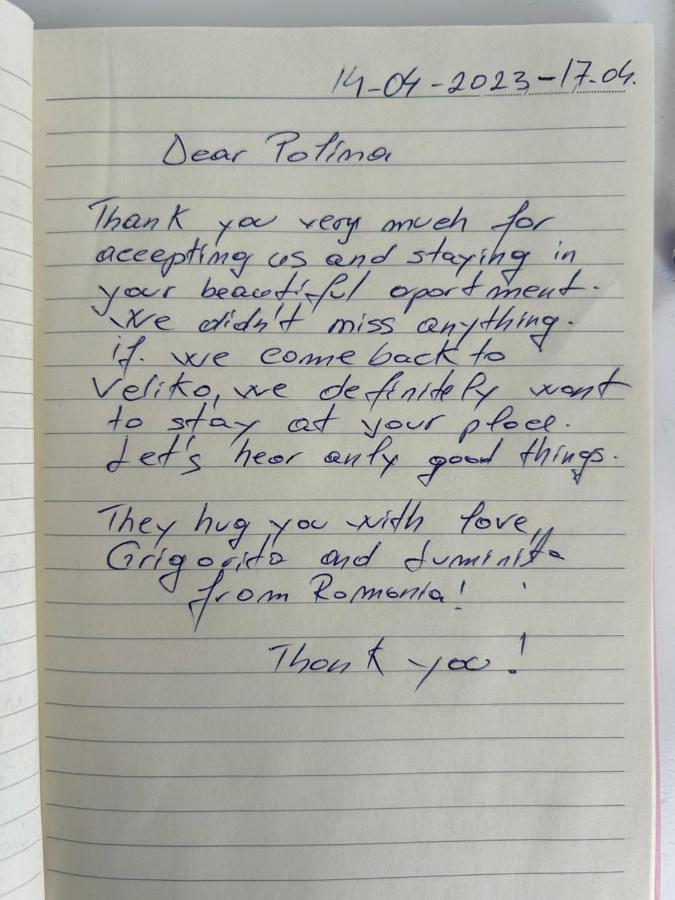 14-04-2023-17.04.
Dear Polina
Thank you very much for
accepting us and staying in
your beautiful apartment.
We didn't miss anything.
if. we come back to
Veliko, we definitely want
to stay at your place.
Let's hear only good things.
They hug you with love,
Grigorița and Luminița
from Romania!
Thank you!